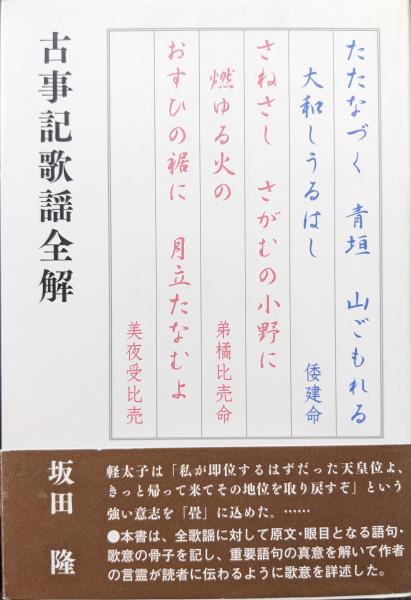 たたなづく 青垣 山ごもれる
大和しうるはし
倭建命
さねさし さがむの小野に
燃ゆる火の
弟橘比売命
おすひの裾に 月立たなむよ
美夜受比売
古事記歌謡全解
坂田 隆
軽太子は「私が即位するはずだった天皇位よ、
きっと帰って来てその地位を取り戻すぞ」という
強い意志を「畳」に込めた。……
●本書は、全歌謡に対して原文・眼目となる語句・
歌意の骨子を記し、重要語句の真意を解いて作者
の言霊が読者に伝わるように歌意を詳述した。